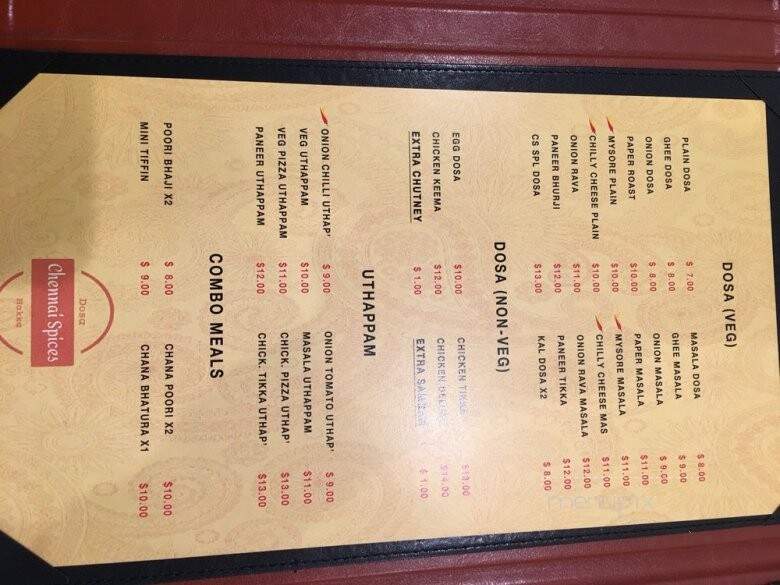 DOSA (VEG)
PLAIN DOSA $ 7.00 MASALA DOSA $ 8.00
GHEE DOSA $ 8.00 GHEE MASALA $ 9.00
ONION DOSA $ 8.00 ONION MASALA $ 9.00
PAPER ROAST $10.00 PAPER MASALA $11.00
MYSORE PLAIN $10.00 MYSORE MASALA $11.00
CHILLY CHEESE PLAIN $10.00 CHILLY CHEESE MAS $11.00
ONION RAVA $11.00 ONION RAVA MASALA $12.00
PANEER BHURJI $12.00 PANEER TIKKA $12.00
CS SPL DOSA $13.00 KAL DOSA X2 $ 8.00
DOSA (NON-VEG)
EGG DOSA $10.00 CHICKEN TIKKA $13.00
CHICKEN KEEMA $12.00 CHICKEN $14.00
EXTRA CHUTNEY $ 1.00 EXTRA SAMBAR $ 1.00
UTHAPPAM
ONION CHILLI UTHAP' $ 9.00 ONION TOMATO UTHAP' $ 9.00
VEG UTHAPPAM $10.00 MASALA UTHAPPAM $11.00
VEG PIZZA UTHAPPAM $11.00 CHICK. PIZZA UTHAP' $13.00
PANEER UTHAPPAM $12.00 CHICK. TIKKA UTHAP' $13.00
COMBO MEALS
POORI BHAJI X2 $ 8.00 CHANA POORI X2 $10.00
MINI TIFFIN $ 9.00 CHANA BHATURA X1 $10.00
Dosa
Chennai Spices
Hakka
menupix